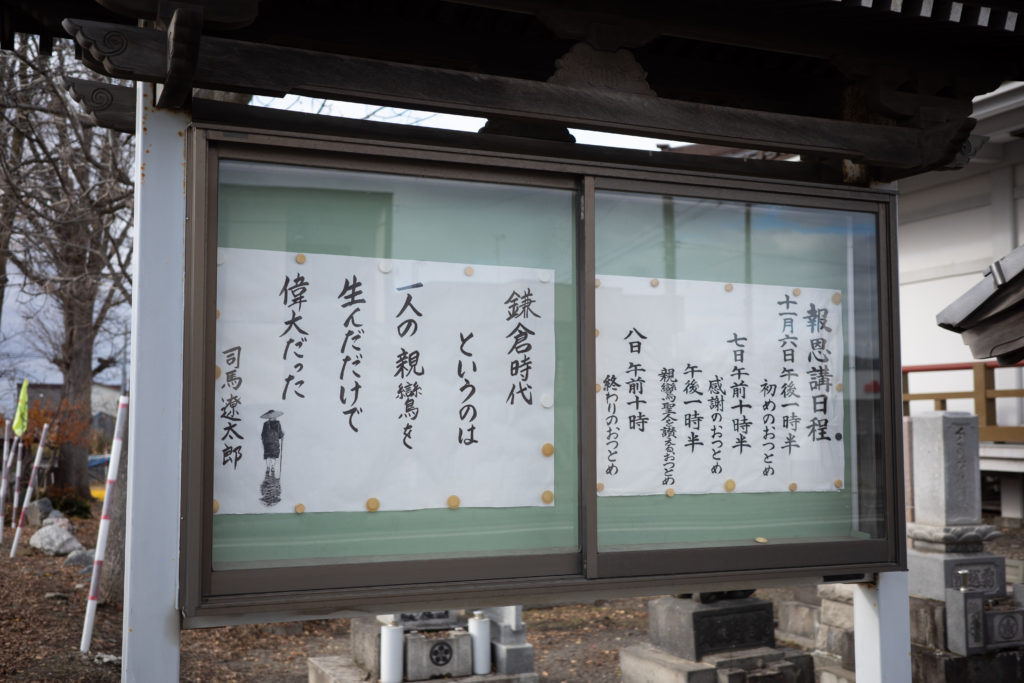 報恩講日程
十一月六日午後一時半
初めのおつとめ
七日午前十時半
感謝のおつとめ
午後一時半
親鸞聖人を讃えるおつとめ
八日午前十時
終わりのおつとめ
鎌倉時代
というのは
一人の親鸞を
生んだだけで
偉大だった
司馬遼太郎